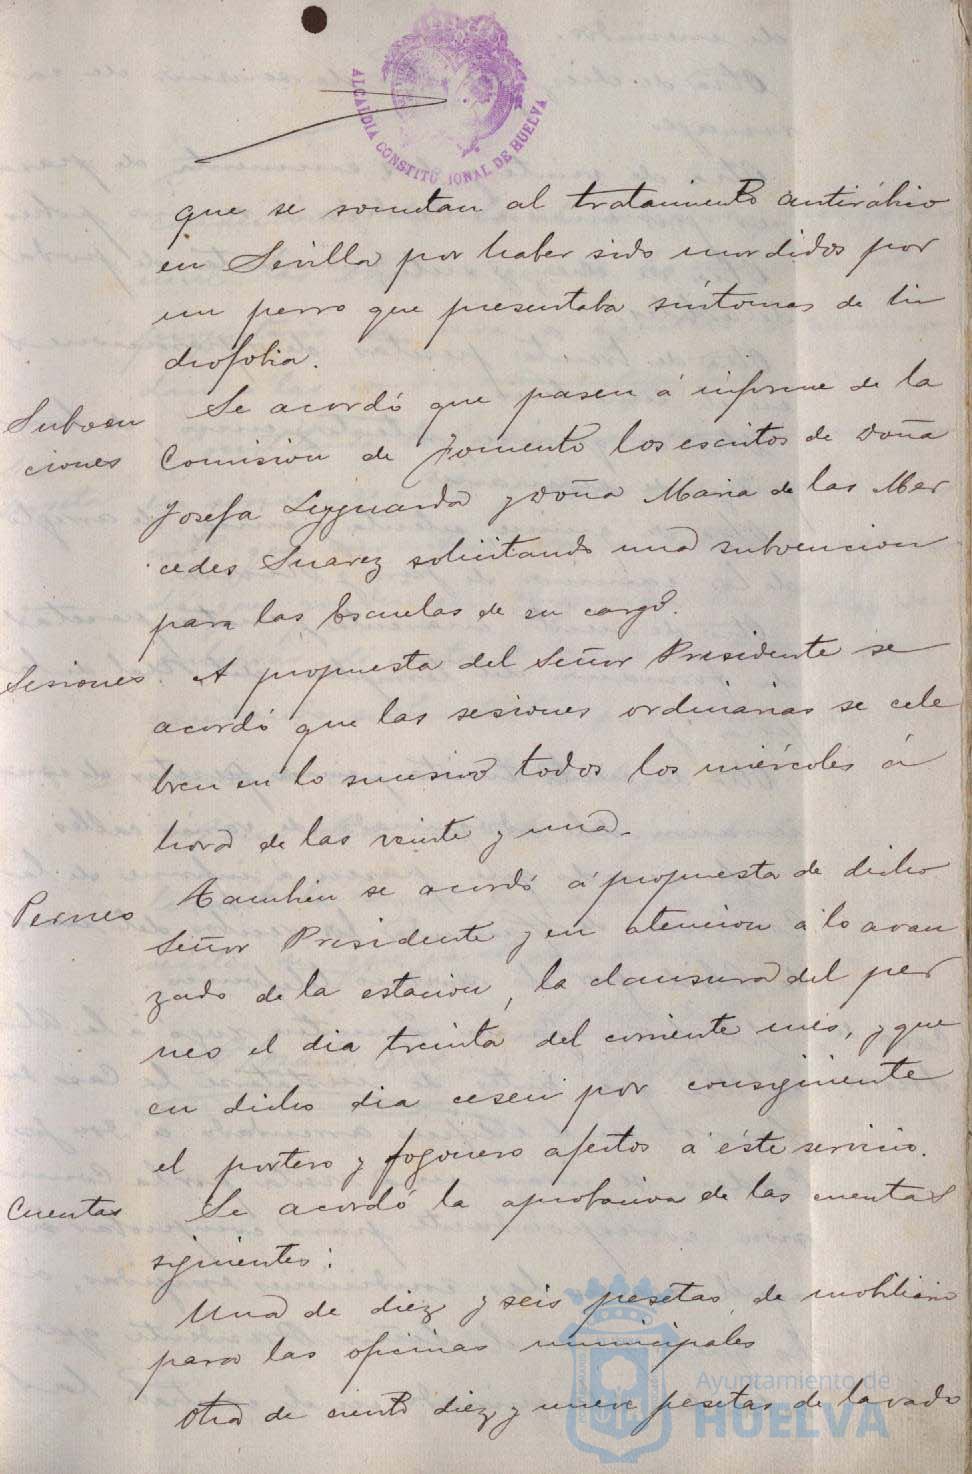 ALCALDIA CONSTITUCIONAL DE HUELVA
que se sometan al tratamiento antirábico
en Sevilla por haber sido mordidos por
un perro que presentaba síntomas de hi
drofobia.
Subven
ciones
Se acordó que pasen á informe de la
Comision de Fomento los escritos de Doña
Josefa Leyguarda y Doña Maria de las Mer
cedes Suarez solicitando una subvencion
para las Escuelas de su cargo.
Sesiones
A propuesta del Señor Presidente se
acordó que las sesiones ordinarias se cele
bren en lo sucesivo todos los miércoles á
hora de las veinte y una.
Perneo
Tambien se acordó á propuesta de dicho
Señor Presidente y en atencion á lo avan
zado de la estacion, la clausura del per
neo el dia treinta del corriente mes, y que
en dicho dia cesen por consiguiente
el portero y fogonero afectos á éste servicio.
Cuentas
Se acordó la aprobacion de las cuentas
siguientes:
Una de diez y seis pesetas de mobiliario
para las oficinas municipales
Otra de ciento diez y nueve pesetas de lavado
Ayuntamiento de
HUELVA